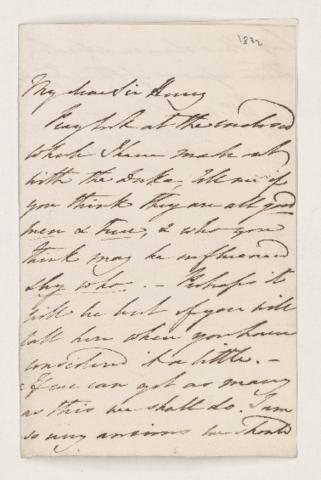 1832
My dear Sir Henry
Pray look at the enclosed
which I have made out
with the Duke. Tell me if
you think they are all good
men & true, & who you
think may be influenced
by who. — Perhaps it
will be but if you will
call here when you have
considered it a little. —
If we can get as many
as this we shall do. I am
so very anxious we should